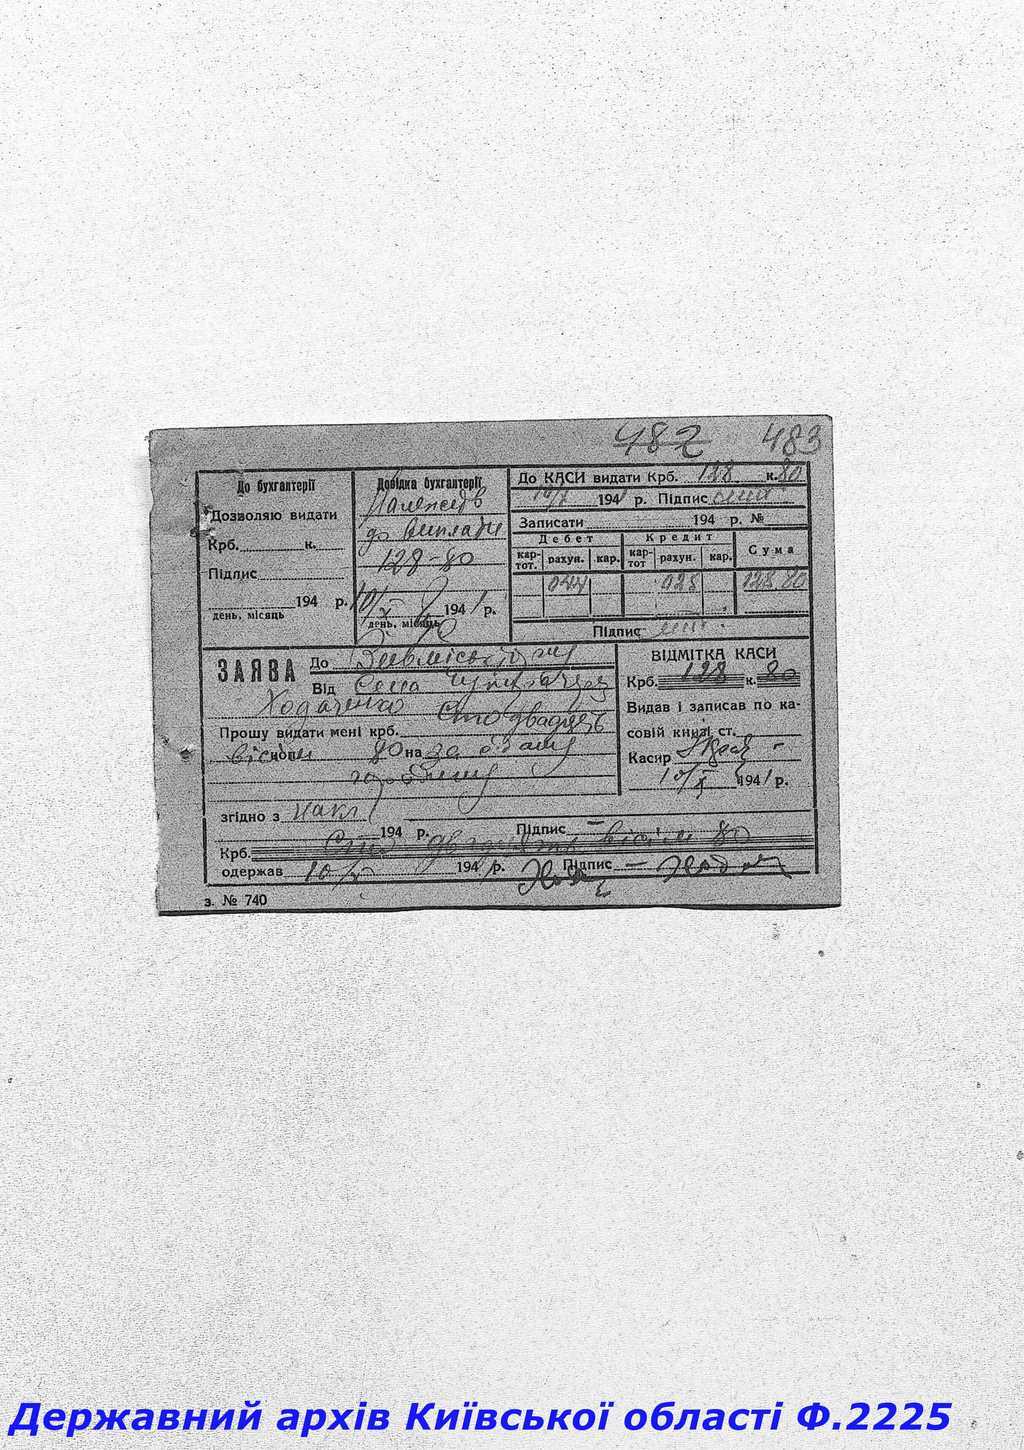 482 483
До бухгалтерії
Дозволяю видати
Крб. к.
Підпис
194 р.
день, місяць
Довідка бухгалтерії
Належить
до виплати
128-80
10/X 1941 р.
день, місяць
До КАСИ видати Крб. 128 к. 80
194 р. Підпис
Записати 194 р. №
Дебет Кредит Сума
кар-тот. рахун. кар. кар-тот рахун. кар.
044 028 128.80
Підпис
ЗАЯВА До
Від Села
Ходаченко Сто двадцять
Прошу видати мені крб.
вісім коп. 80 на за здану
городину
згідно з накл
194 р. Підпис
Крб. Сто двадцять вісім 80
одержав 10/X 1941 р. Підпис
ВІДМІТКА КАСИ
Крб. 128 к. 80
Видав і записав по ка-
совій книзі ст.
Касир
10/X 1941 р.
з. № 740
Державний архів Київської області Ф.2225